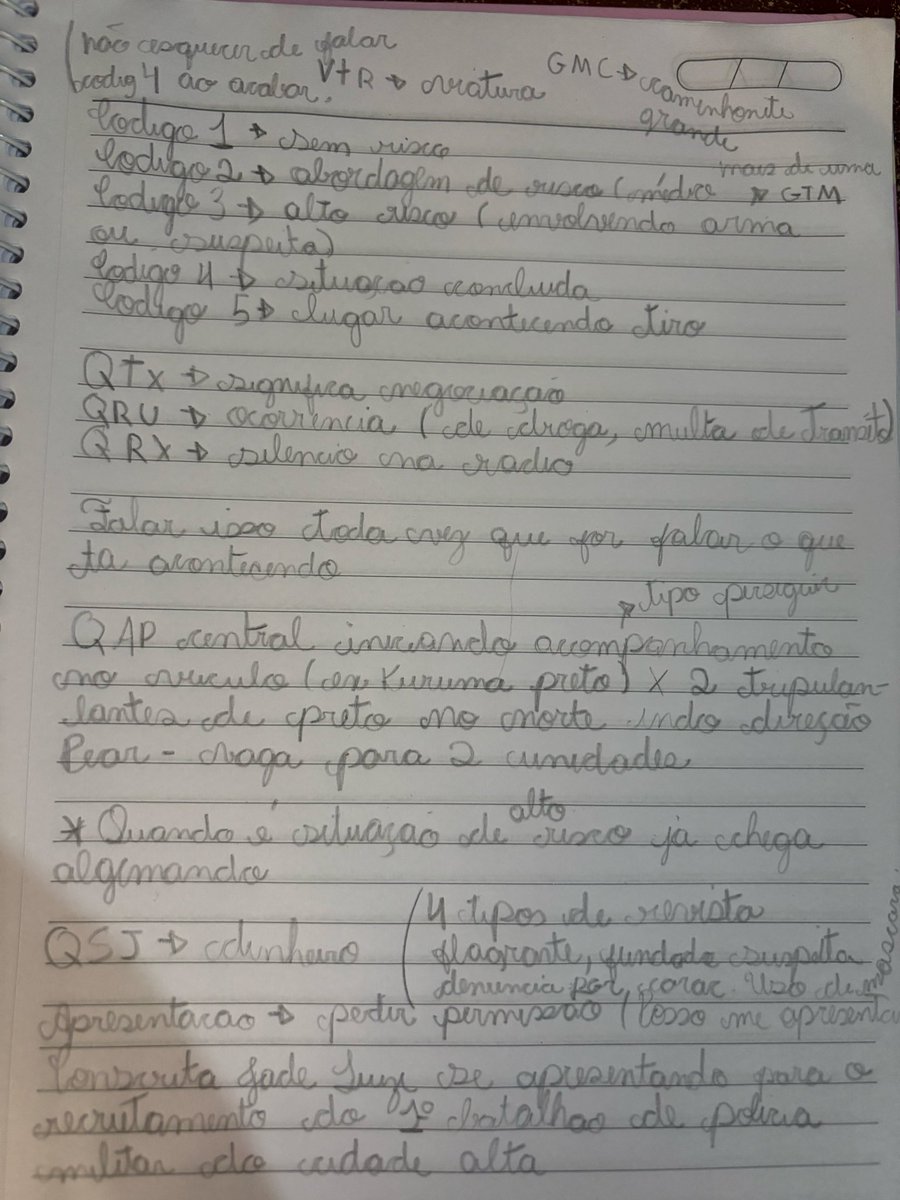 (não esquecer de falar
codig 4 ao acabar. VTR → viatura GMC → caminhonite
grande
Codigo 1 → sem risco
mais de uma
Codigo 2 → abordagem de risco (médico → GTM
Codigo 3 → alto risco (envolvendo arma
ou suspeita)
Codigo 4 → situaçao concluida
Codigo 5 → lugar acontecendo tiro
QTX → significa negociação
QRU → ocorrência (de droga, multa de Transito)
QRX → silencio na radio
Falar isso toda vez que for falar o que
ta acontecendo
→ tipo perseguir
QAP central iniciando acompanhamento
no veiculo (ex, Kuruma preto) x 2 tripulan-
tantes de preto no norte indo direção
Pear - chaga para 2 unidades
* Quando é situação de alto risco ja chega
algemando
QSJ → dinheiro
(4 tipos de revista
flagrante, fundada suspeita
denuncia por, Uso de mascara.
Apresentacao → pedir permissão (Posso me apresenta
Conscrita Jade se apresentando para o
recrutamento do 1º batalhao de policia
militar do cidade alta